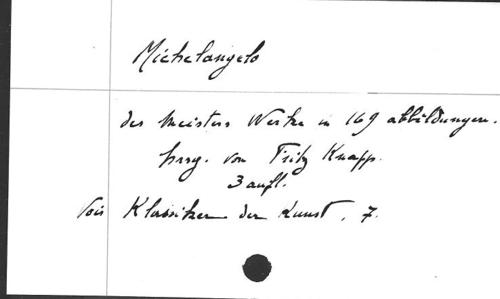 Michelangelo
des Meisters Werke in 169 abbildungen.
hrsg. von Fritz Knapp.
3 aufl.
Voir Klassiker der Kunst, 7.